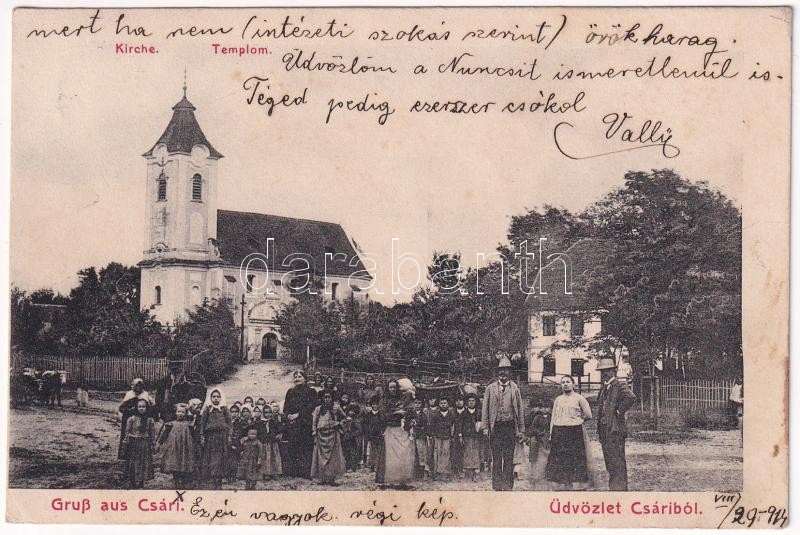 mert ha nem (intézeti szokás szerint) örök harag.
Kirche. Templom.
Üdvözlöm a Nuncsit ismeretlenül is.
Téged pedig ezerszer csókol
Vally
darabanth
Gruß aus Csári. Üdvözlet Csáriból.
x Ez én vagyok. régi kép. VIII/29-914